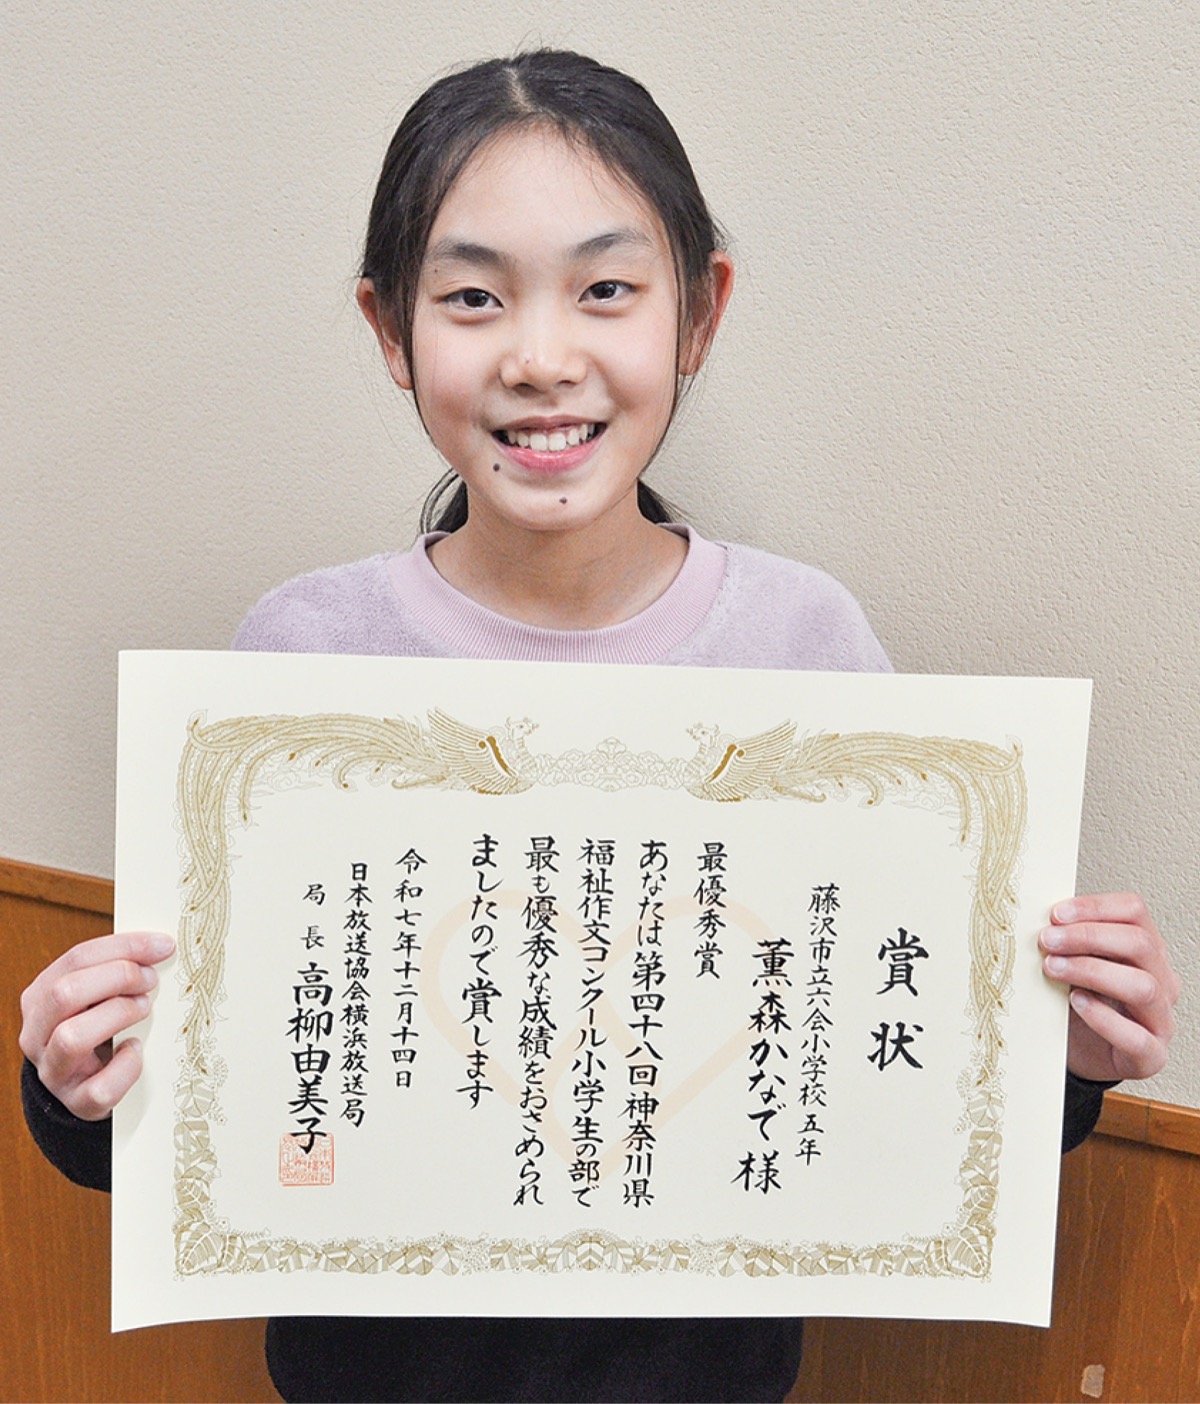 賞状
藤沢市立六会小学校 五年
薫森かなで様
最優秀賞
あなたは第四十八回神奈川県
福祉作文コンクール小学生の部で
最も優秀な成績をおさめられ
ましたので賞します
令和七年十二月十四日
日本放送協会横浜放送局
局長 高柳由美子